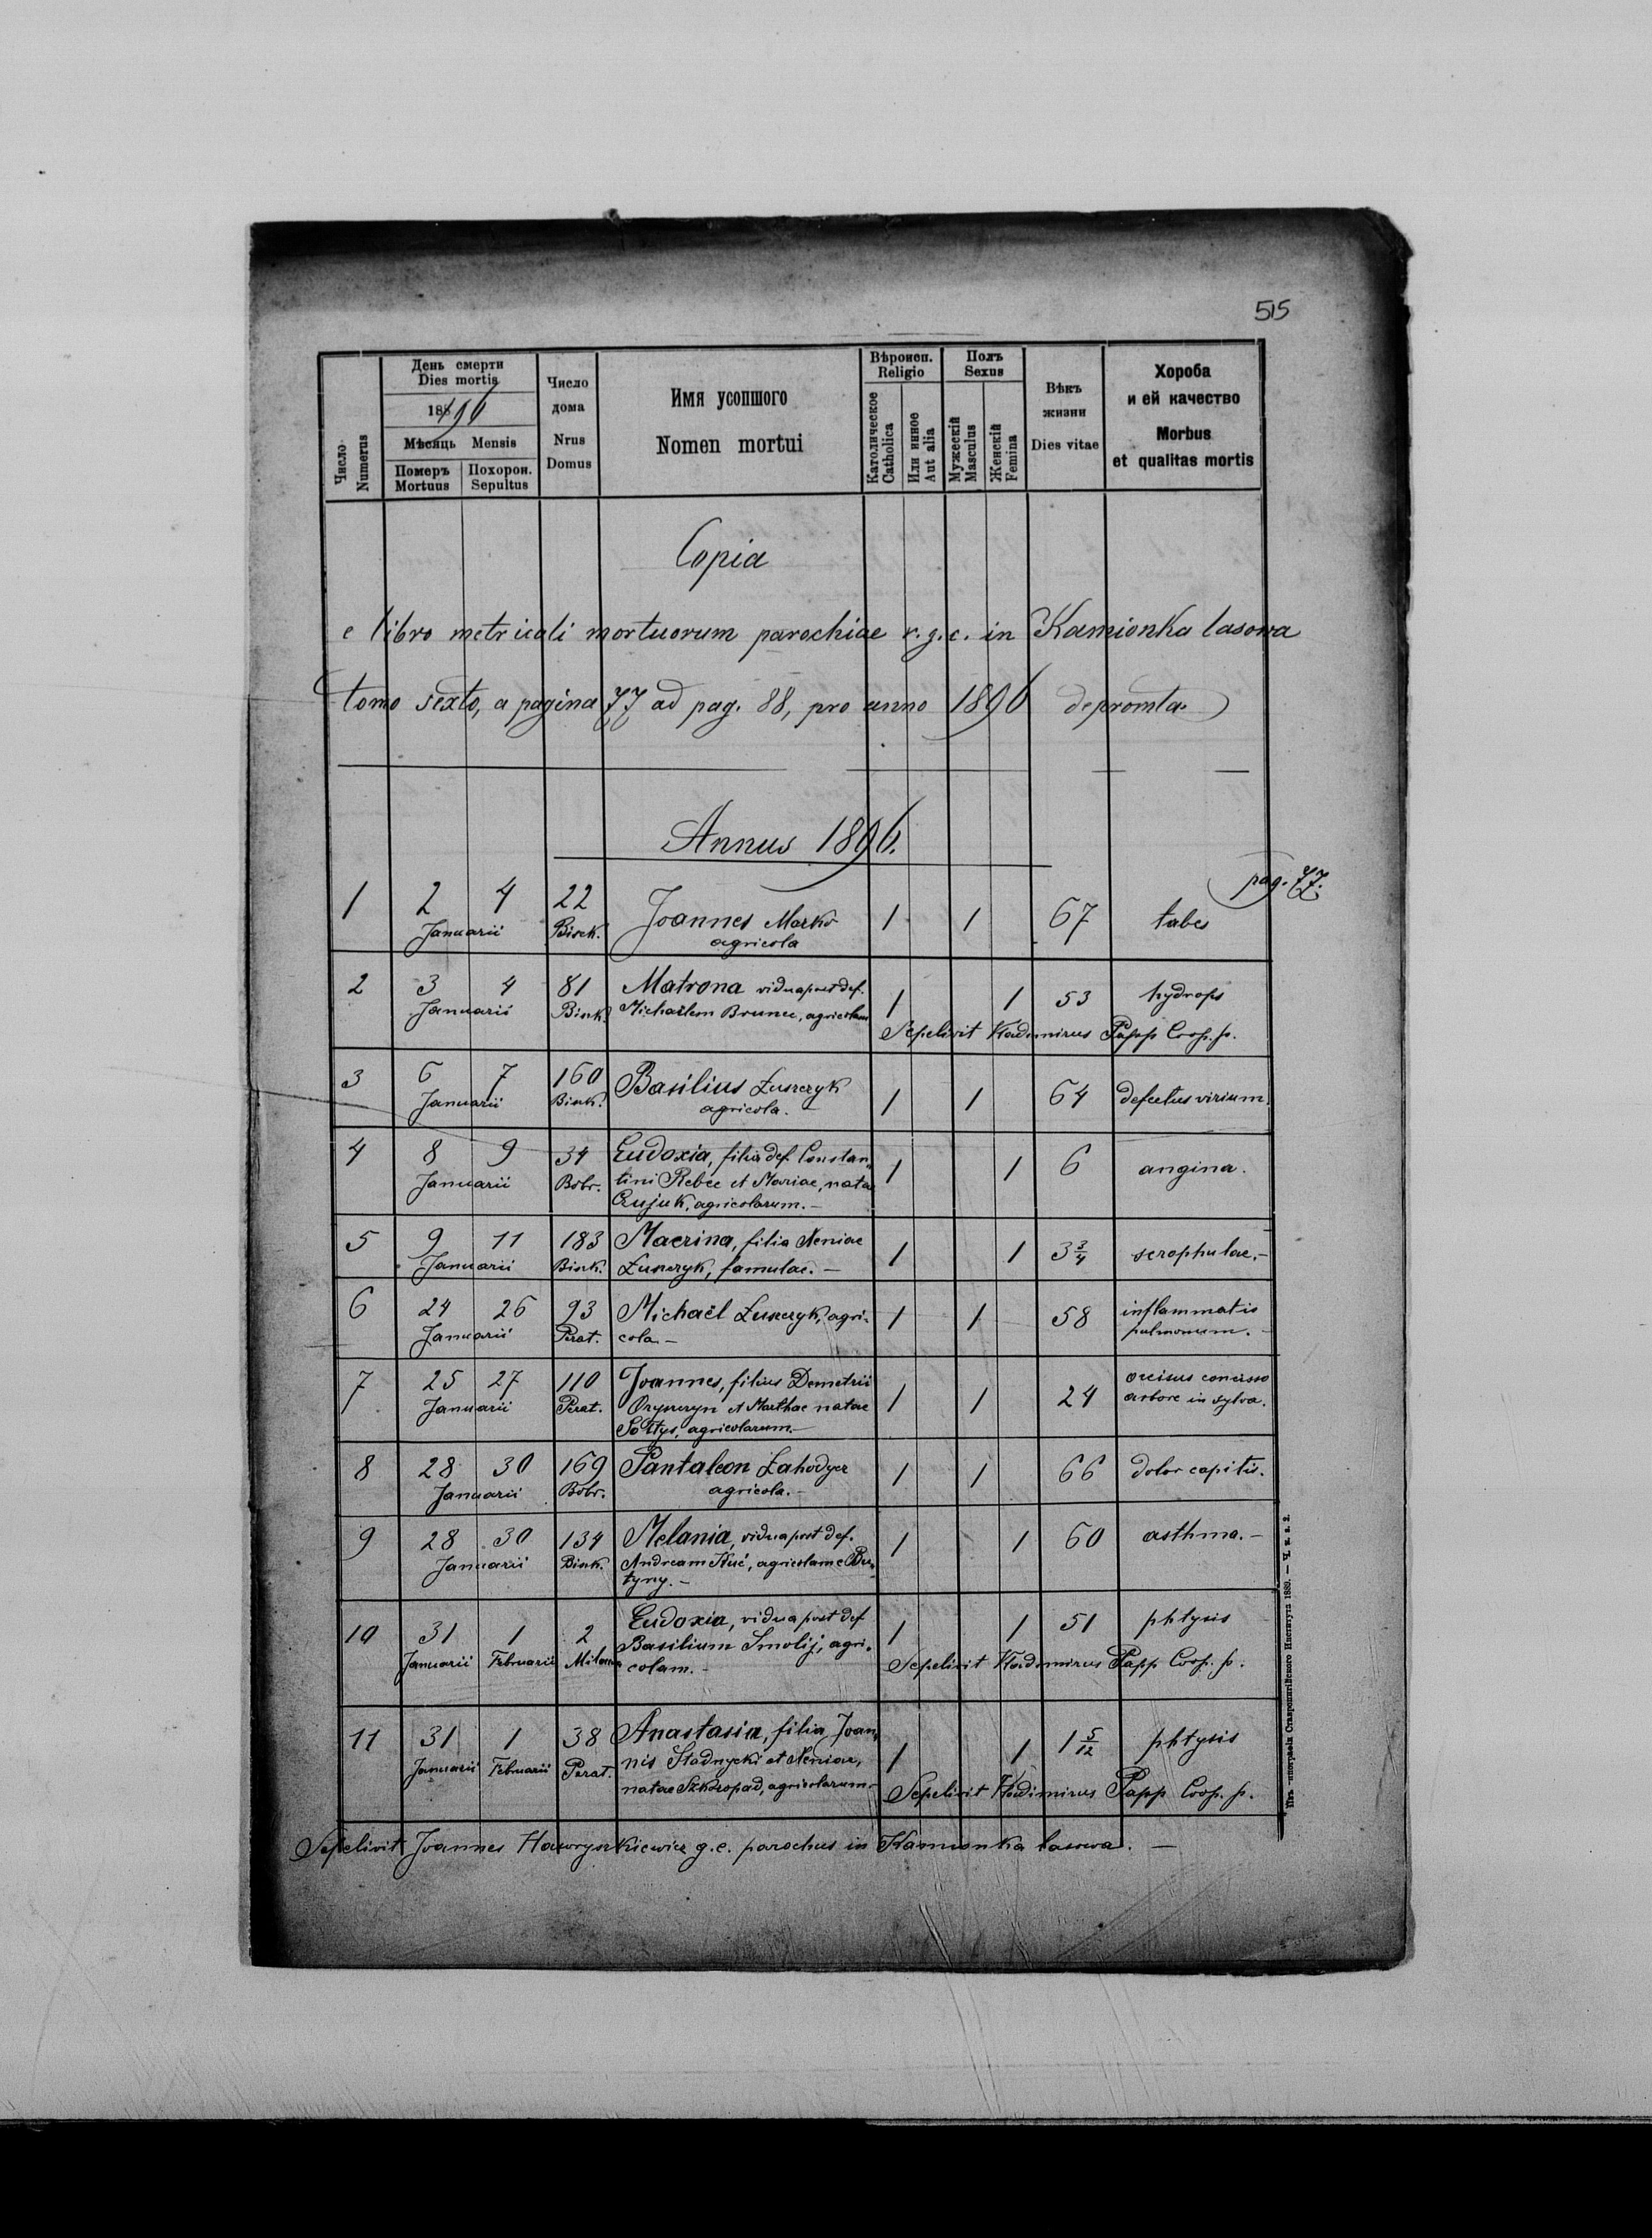 515
Число
Numerus
День смерти
Dies mortis
1896
Мѣсяць Mensis
Померъ Похорон.
Mortuus Sepultus
Число
дома
Nrus
Domus
Имя усопшого
Nomen mortui
Вѣроисп.
Religio
Католическое
Catholica
Или инное
Aut alia
Полъ
Sexus
Мужескій
Masculus
Женскій
Femina
Вѣкъ
жизни
Dies vitae
Хороба
и ей качество
Morbus
et qualitas mortis
Copia
e libro metricali mortuorum parochiae r.g.c. in Kamionka lasowa
tomo sexto, a pagina 77 ad pag. 88, pro anno 1896 depromta
Annus 1896.
pag. 77.
1 2 4 22 Joannes Marko 1 1 67 tabes
Januarii agricola
2 3 4 81 Matrona vidua post def. 1 1 53 hydrops
Januarii Michaëlem agricolam
Sepelivit Wladimirus Papp Coop. p.
3 6 7 160 Basilius Łuszczyk 1 1 64 defectus virium.
Januarii agricola.
4 8 9 34 Eudoxia, filia def. Constan- 1 1 6 angina.
Januarii Bobr. tini et Mariae, natae
agricolarum.–
5 9 11 183 Macrina, filia Xeniae 1 1 3 3/4 scrophulae.–
Januarii Łuszczyk, famulae.–
6 24 26 93 Michaël Łuszczyk, agri- 1 1 58 inflammatio
Januarii Perat. cola.– pulmonum.
7 25 27 110 Joannes, filius Demetrii 1 1 24 occisus concisso
Januarii Perat. et Marthae natae arbore in sylva.
Sołtys, agricolarum.–
8 28 30 169 Pantaleon Zahodyer 1 1 66 dolor capitis.
Januarii Bobr. agricola.–
9 28 30 134 Melania, vidua post def. 1 1 60 asthma.–
Januarii Andream Kuć, agricolam e Bu-
tyny.–
10 31 1 2 Eudoxia, vidua post def. 1 1 51 phtysis
Januarii Februarii Basilium Smolij, agri-
colam.–
Sepelivit Wladimirus Papp Coop. p.
11 31 1 38 Anastasia, filia Joan- 1 1 1 5/12 phtysis
Januarii Februarii Perat. nis Stadnycki et Xeniae,
natae agricolarum.–
Sepelivit Wladimirus Papp Coop. p.
Sepelivit Joannes Hawryszkiewicz g.c. parochus in Kamionka lasowa.–
Изъ типографіи Ставропигійского Института 1889. — Ч. п. в. 2.